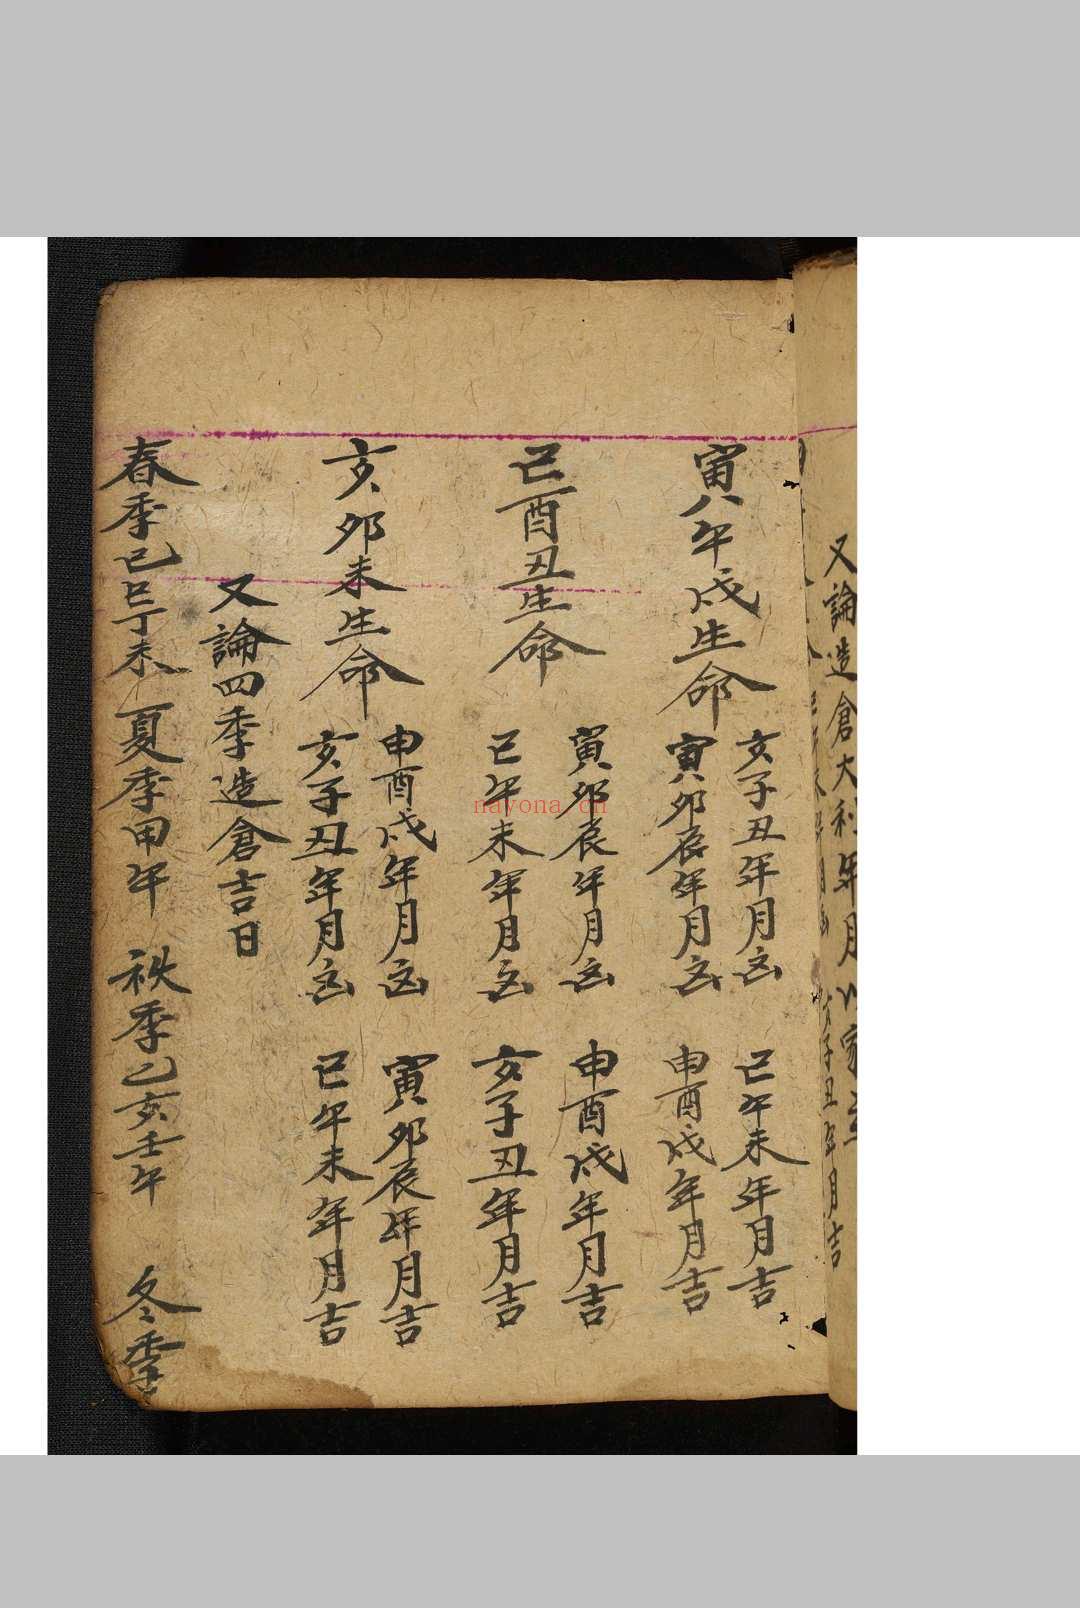 又論造倉大利年月
子丑年月吉
寅午戌生命
亥子丑年月凶
巳午未年月吉
寅卯辰年月凶
申酉戌年月吉
巳酉丑生命
寅卯辰年月凶
申酉戌年月吉
巳午未年月凶
亥子丑年月吉
亥卯未生命
申酉戌年月凶
寅卯辰年月吉
亥子丑年月凶
巳午未年月吉
又論四季造倉吉日
春季己巳丁未 夏季甲午 秩季乙亥壬午 冬季
nayona.cn